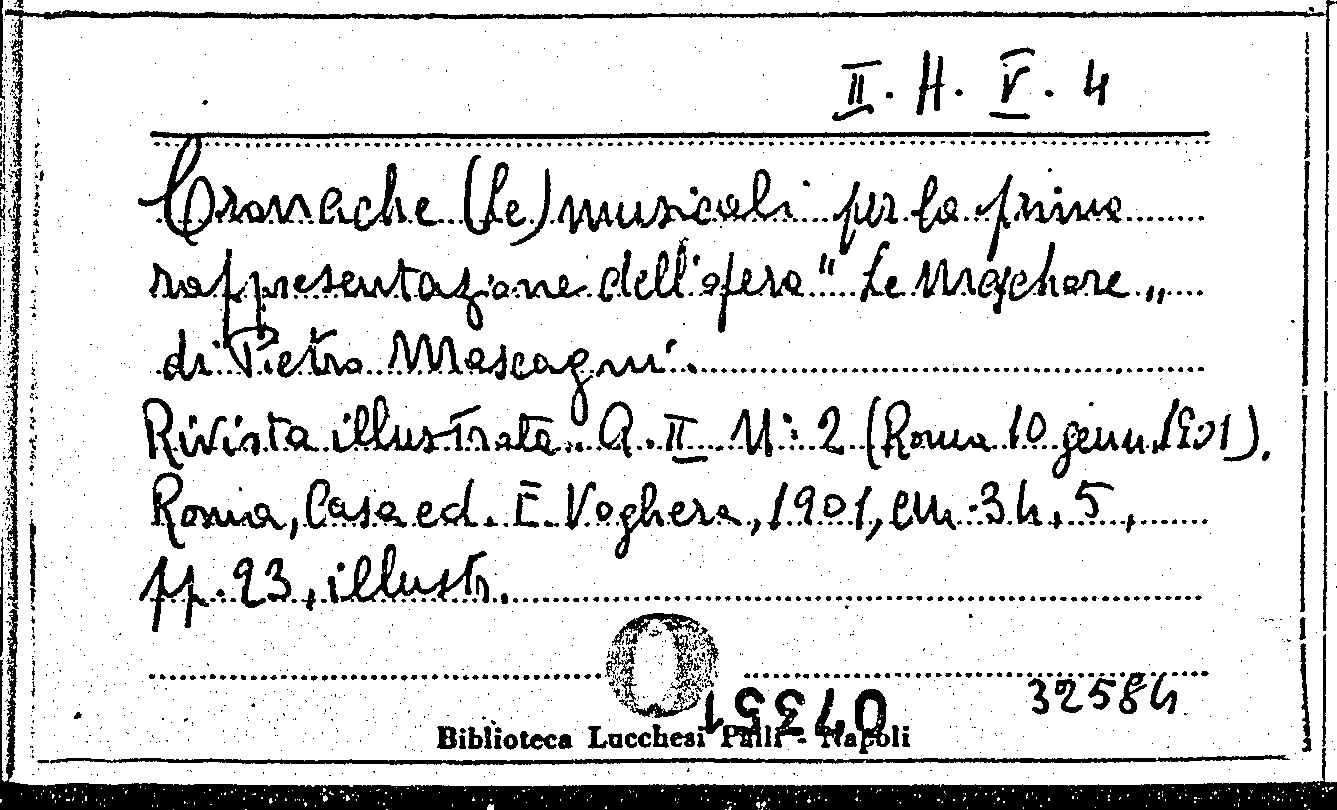 II. H. V. 4
Cronache (Le) musicali per la prima
rappresentazione dell'opera "Le Maschere„
di Pietro Mascagni.
Rivista illustrata. A. II N: 2 (Roma 10 genn. 1901).
Roma, Casa ed. E. Voghera, 1901, cm. 34,5,
pp. 23, illustr.
32584
Biblioteca Lucchesi Palli - Napoli